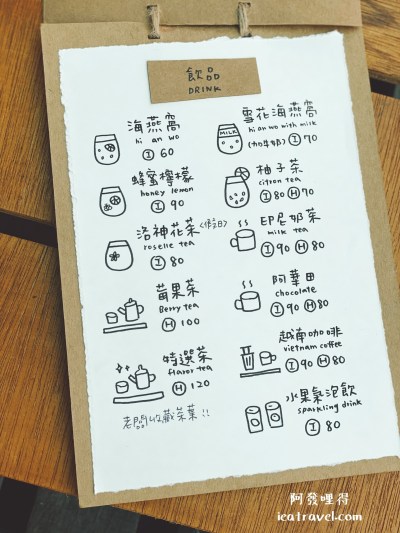 飲品
DRINK
海燕窩
hi an wo
Ⓘ 60
蜂蜜檸檬
honey lemon
Ⓘ 90
洛神花茶 <假日>
roselle tea
Ⓘ 80
莓果茶
Berry tea
Ⓗ 100
特選茶
flavor tea
Ⓗ 120
老闆收藏茶葉!!
雪花海燕窩
hi an wo with milk
MILK
(加牛奶) Ⓘ 70
柚子茶
citron tea
Ⓘ 80 Ⓗ 70
印尼奶茶
milk tea
Ⓘ 90 Ⓗ 80
阿華田
chocolate
Ⓘ 90 Ⓗ 80
越南咖啡
vietnam coffee
Ⓘ 90 Ⓗ 80
水果氣泡飲
sparkling drink
Ⓘ 80
阿發哩得
icatravel.com